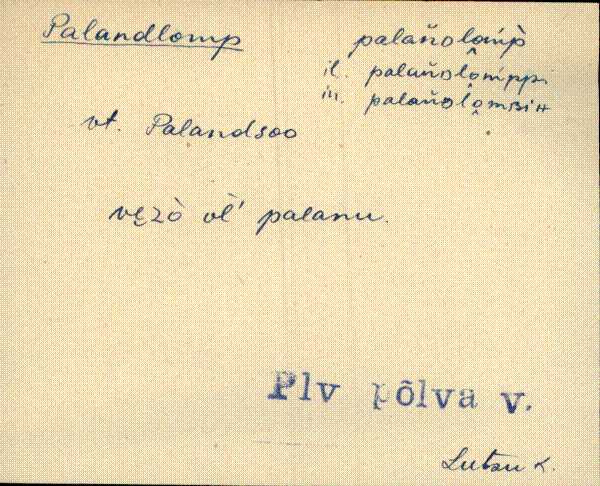 Palandlomp palan̆ᴅlomp̀
il. palan̆ᴅlomppi
in. palan̆ᴅlomʙin
vt. Palandsoo
vȩzò ol̆' palanu.
Plv põlva v.
Lutsu k.